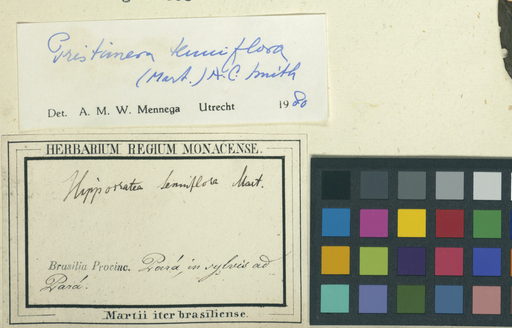 Pristimera tenuiflora
(Mart.) A.C. Smith
Det. A. M. W. Mennega Utrecht 1980
HERBARIUM REGIUM MONACENSE.
Hippocratea tenuiflora Mart.
Brasilia Provinc. Pará, in sylvis ad
Pará.
Martii iter brasiliense.